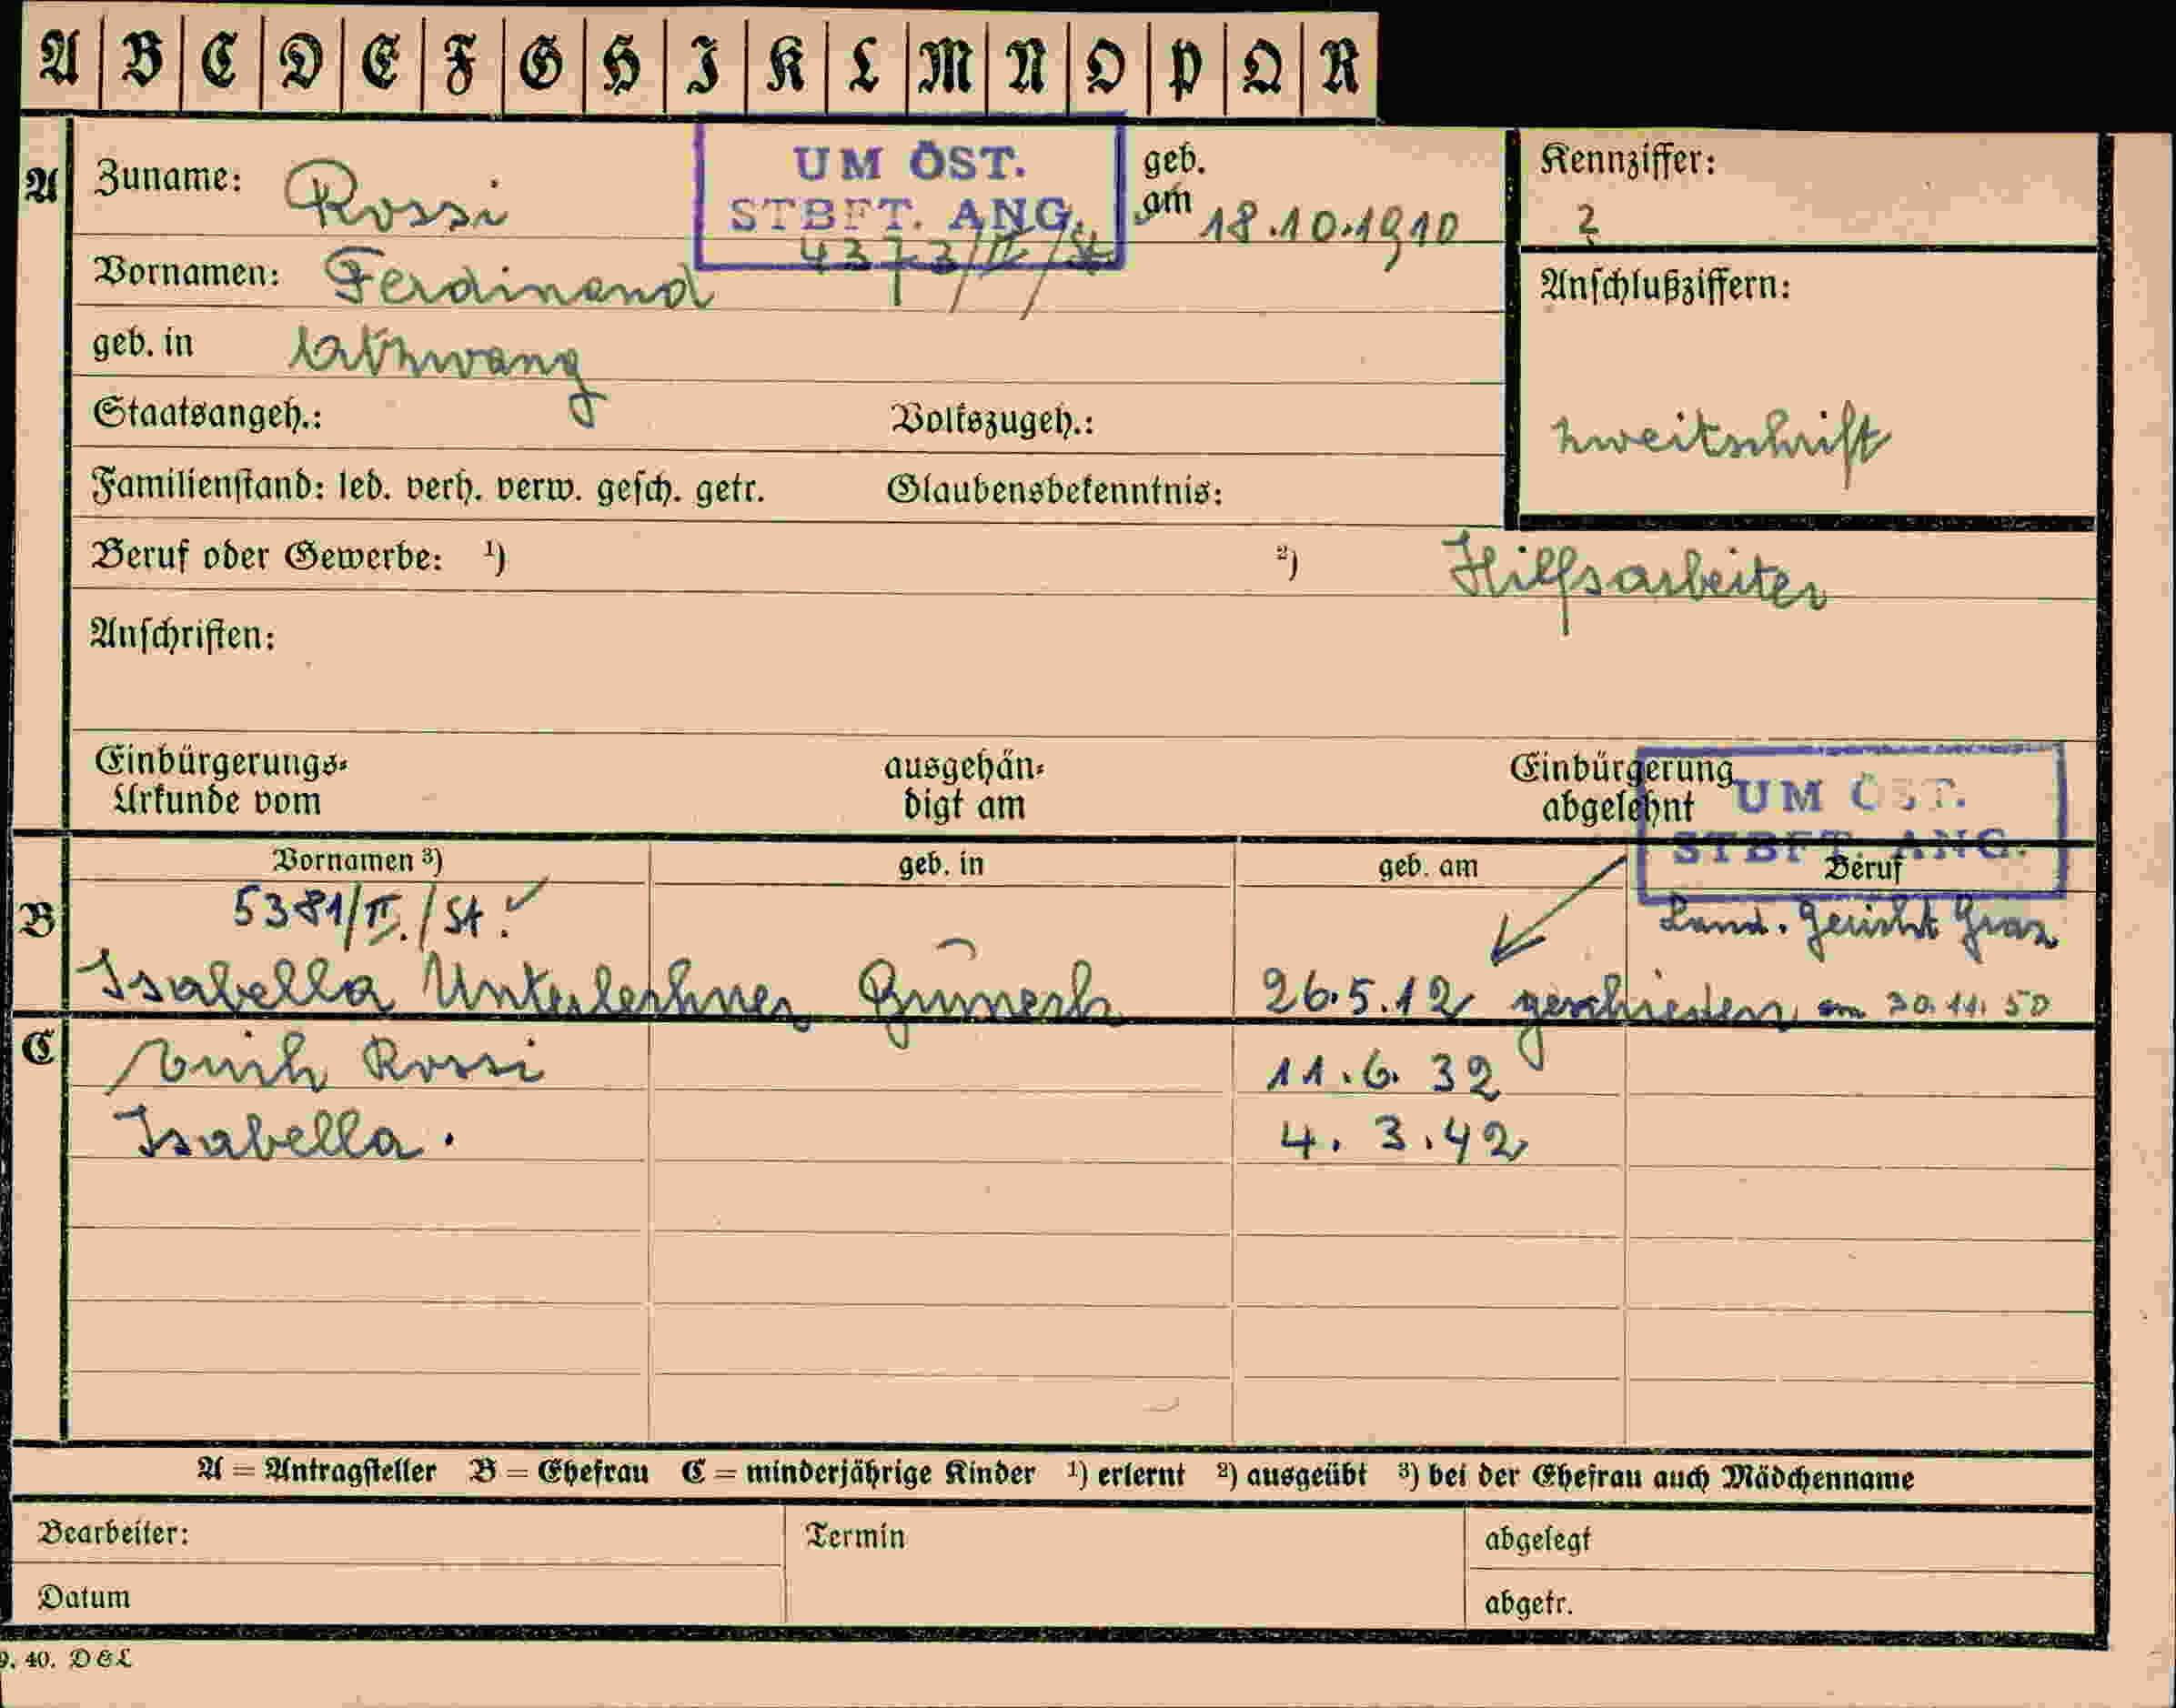 A B C D E F G H I K L M N O P Q R
A Zuname: Rossi
UM ÖST.
STBFT. ANG.
4373/II/St.
geb. am 18.10.1910
Kennziffer:
2
Vornamen: Ferdinand
Anschlußziffern:
geb. in
Zweitschrift
Staatsangeh.: Volkszugeh.:
Familienstand: led. verh. verw. gesch. getr. Glaubensbekenntnis:
Beruf oder Gewerbe: ¹) ²) Hilfsarbeiter
Anschriften:
Einbürgerungs-
Urkunde vom
ausgehän-
digt am
Einbürgerung
abgelehnt
UM ÖST.
STBFT. ANG.
Vornamen ³) geb. in geb. am Beruf
B 5381/II./St. Land. Gericht Graz
Isabella Unterlechner 26.5.12 geschieden am 30.11.50
C Rossi 11.6.32
Isabella. 4.3.42
A = Antragsteller B = Ehefrau C = minderjährige Kinder ¹) erlernt ²) ausgeübt ³) bei der Ehefrau auch Mädchenname
Bearbeiter: Termin abgelegt
Datum abgetr.
9. 40. D&L